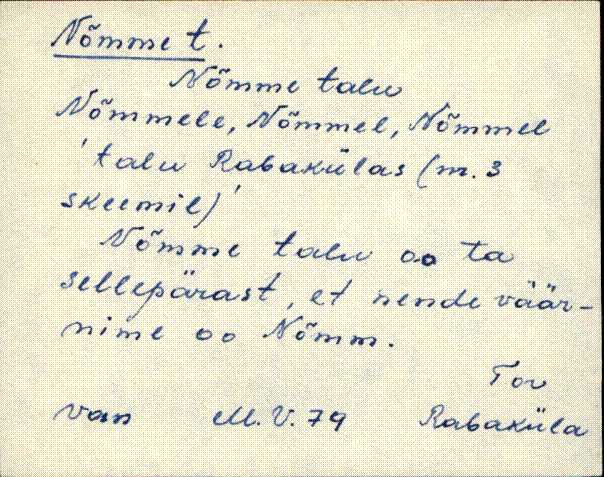 Nõmme t.
Nõmme talu
Nõmmele, Nõmmel, Nõmmel
'talu Rabakülas (m. 3
skeemil)'
Nõmme talu oo ta
sellepärast, et nende väär-
nime oo Nõmm.
Tor
van M.V.79 Rabaküla